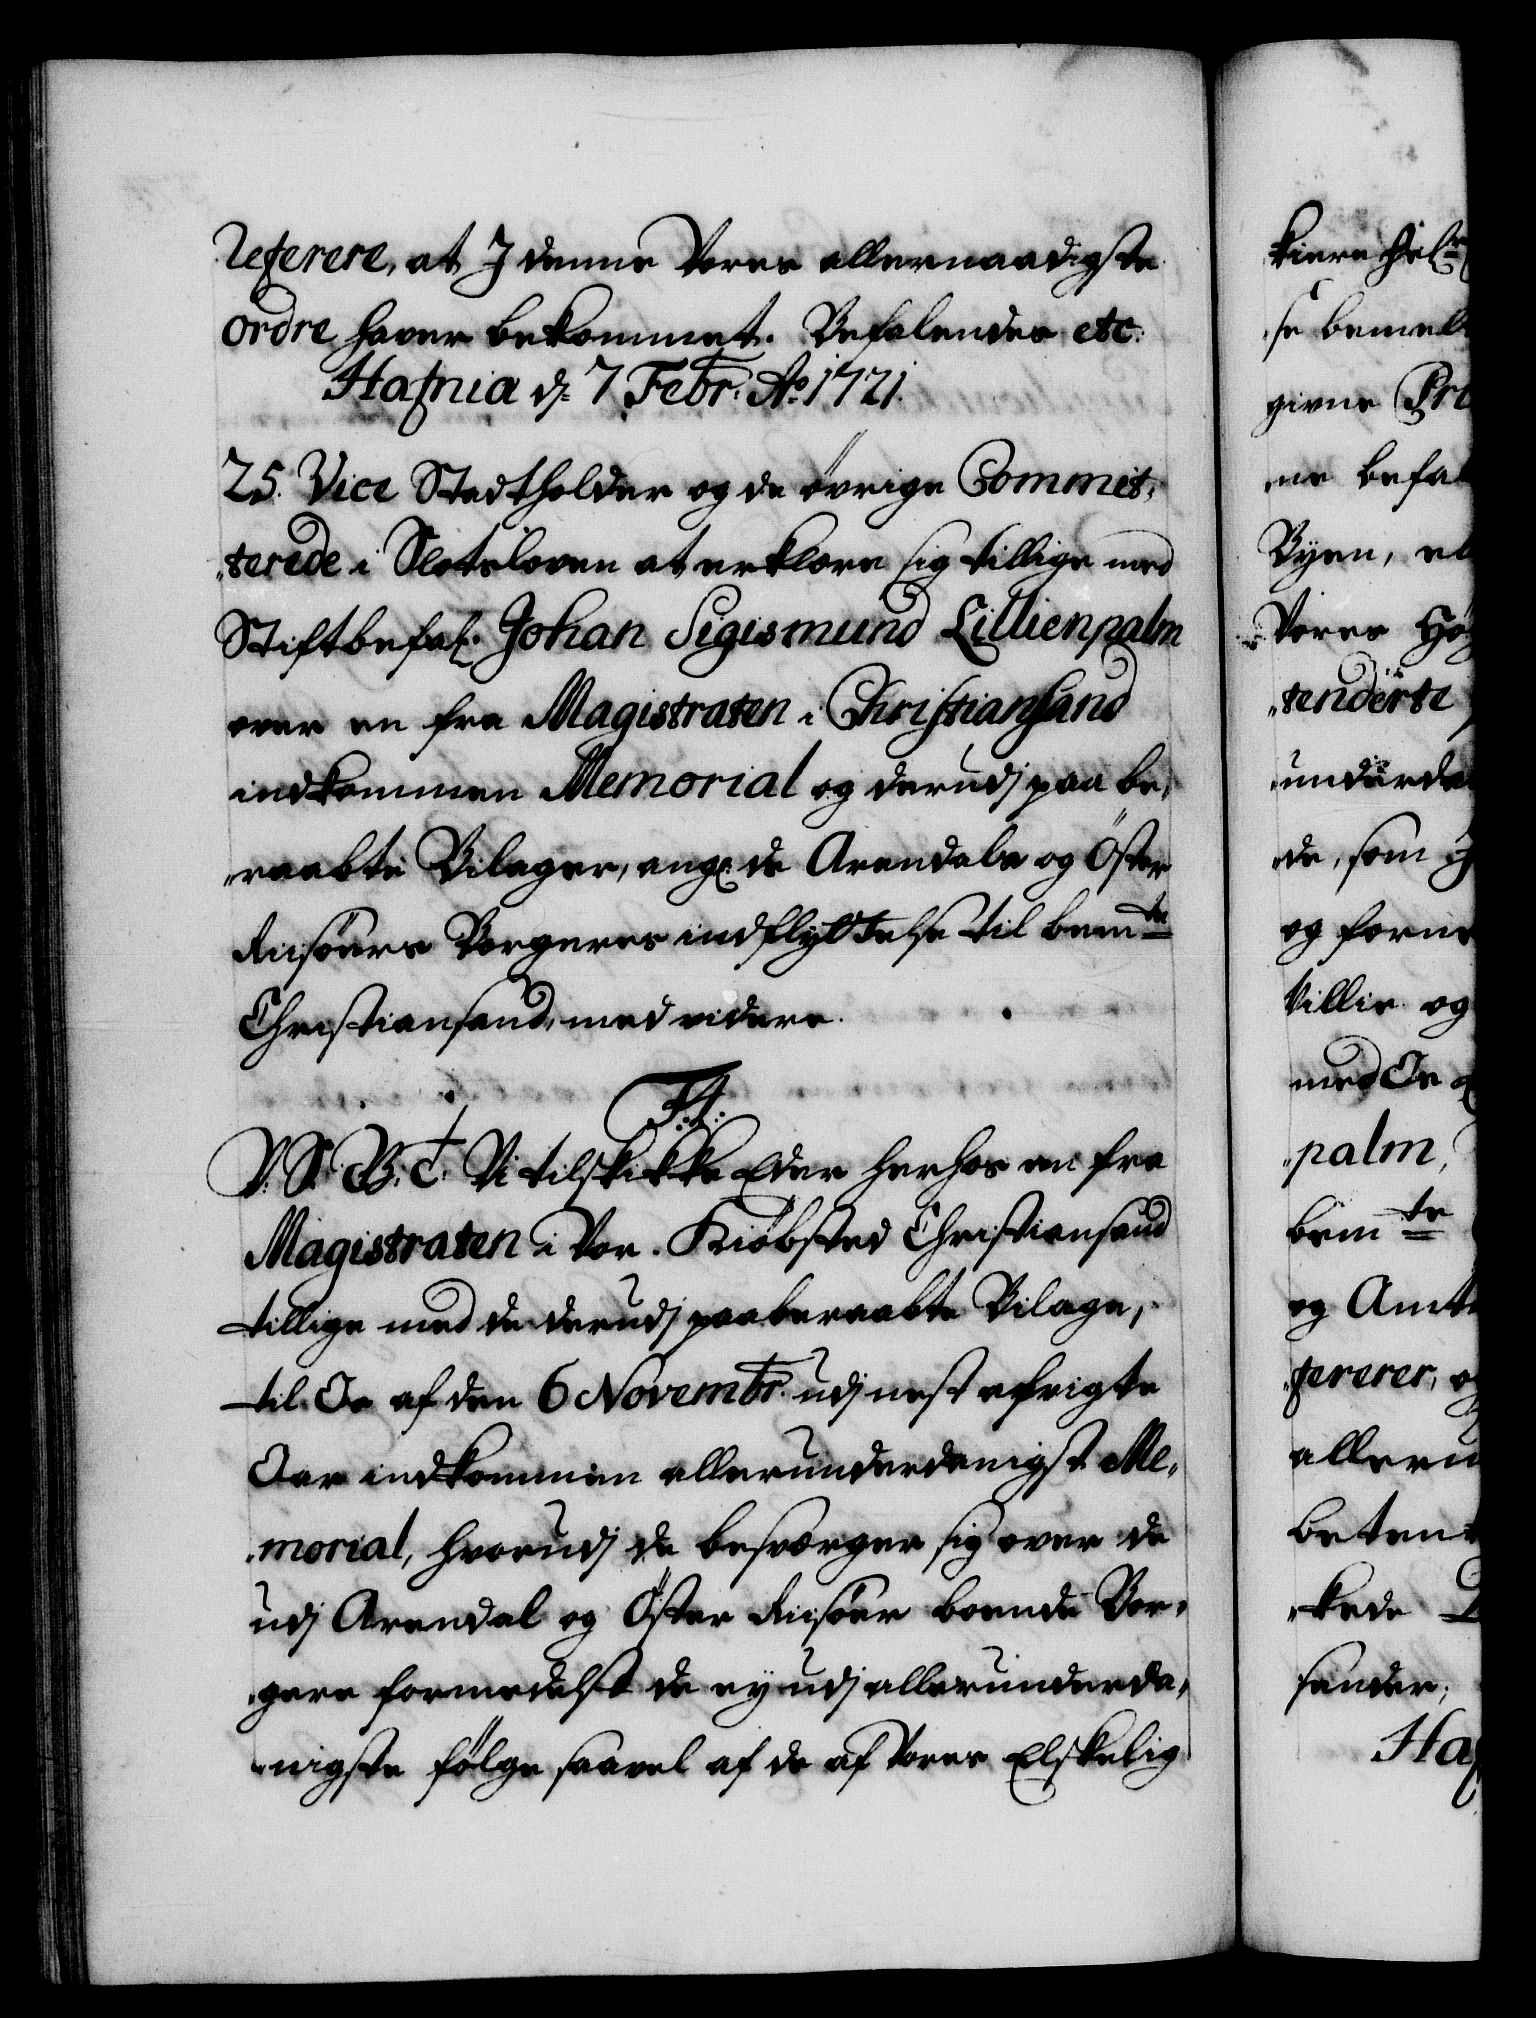 referere, at I denne Vores allernaadigste
ordre haver bekommet. Befalendes etc.
Hafnia d. 7 Febr. Ao. 1721.
25. Vice Stadtholder og de övrige Commit„
„terede i Slotsloven at erklære sig tillige med
Stiftbefal: Johan Sigismund Lillienpalm
over en fra Magistraten i Christiansand
indkommen Memorial og derudj paa be„
„raabte Bilager, angl: de Arendals og Öster
Riisöers Borgeres indflyttelse til bemte
Christiansand, med videre.
F: 4:
V. S. G. B. t. Vi tilskikke Eder herhos en fra
Magistraten i Vor Kiöbsted Christiansand
tillige med de derudj paaberaabte Bilage,
til Os af den 6 Novembr. udj nest afvigte
Aar indkommen allerunderdanigst Me„
„morial, hvorudj de besværger sig over de
udj Arendal og Öster Riisöer boende Bor„
„gere formedelst de ey udj allerunderda„
„nigste fölge saavel af de af Vores Elskelig
kiere
se bemel
givne Pre
„ne befal
Byen, el
Vores Hö
„tenderte
underda
de, som I
og forne
Villie og
med Os
„palm,
bemte
og Amt
„fererer, og
alleru
beten
„kede
sender;
Haf